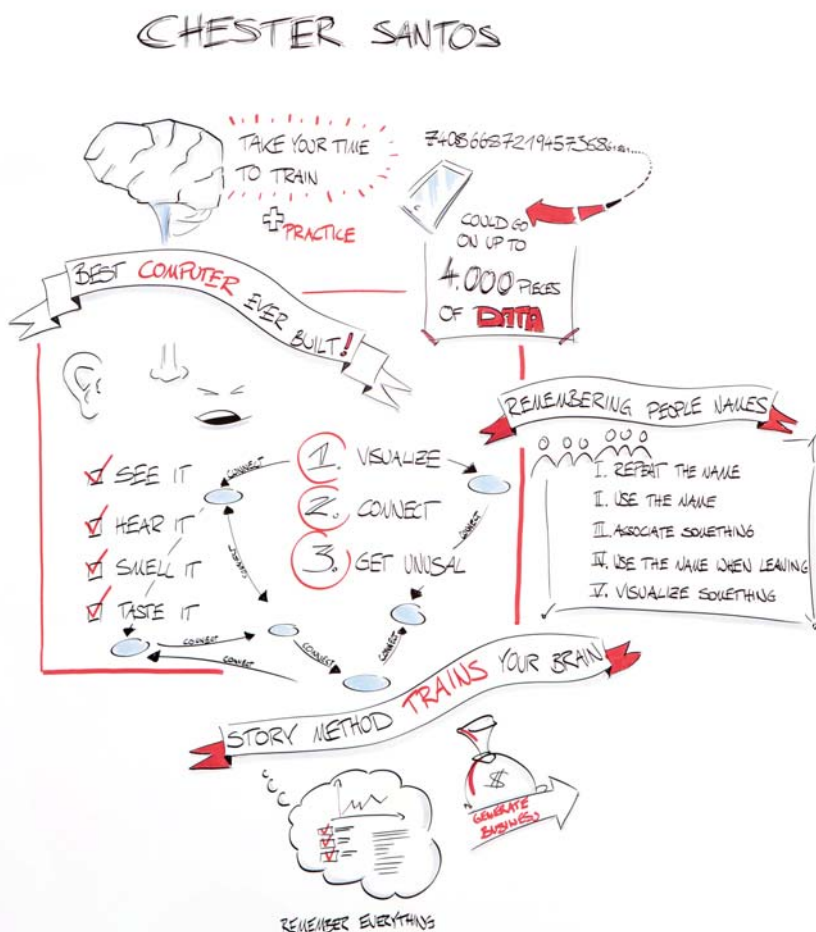 CHESTER SANTOS
TAKE YOUR TIME
TO TRAIN
+ PRACTICE
74086687219457368
COULD GO
ON UP TO
4.000 PIECES
OF DATA
BEST COMPUTER EVER BUILT!
SEE IT
HEAR IT
SMELL IT
TASTE IT
1. VISUALIZE
2. CONNECT
3. GET UNUSAL
CONNECT
CONNECT
CONNECT
CONNECT
CONNECT
CONNECT
CONNECT
REMEMBERING PEOPLE NAMES
I. REPEAT THE NAME
II. USE THE NAME
III. ASSOCIATE SOMETHING
IV. USE THE NAME WHEN LEAVING
V. VISUALIZE SOMETHING
STORY METHOD TRAINS YOUR BRAIN
$
GENERATE
BUSINESS
REMEMBER EVERYTHING